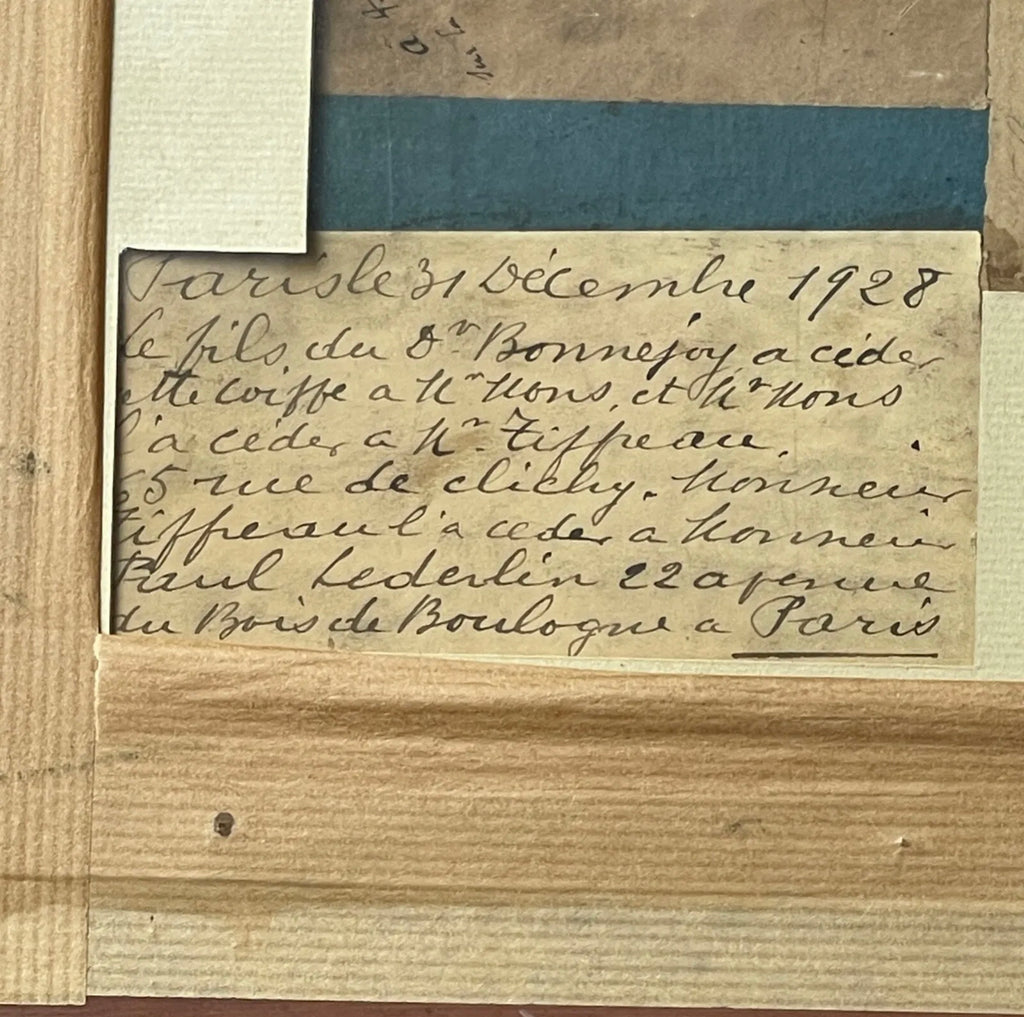 a
Paris le 31 Décembre 1928
Le fils du Dr Bonnejoy a céder
ette coiffe a Mr Mons, et Mr Mons
l'a céder a Mr Tiffreau.
65 rue de clichy. Monsieur
Tiffreau l'a céder a Monsieur
Paul Lederlin 22 avenue
du Bois de Boulogne a Paris